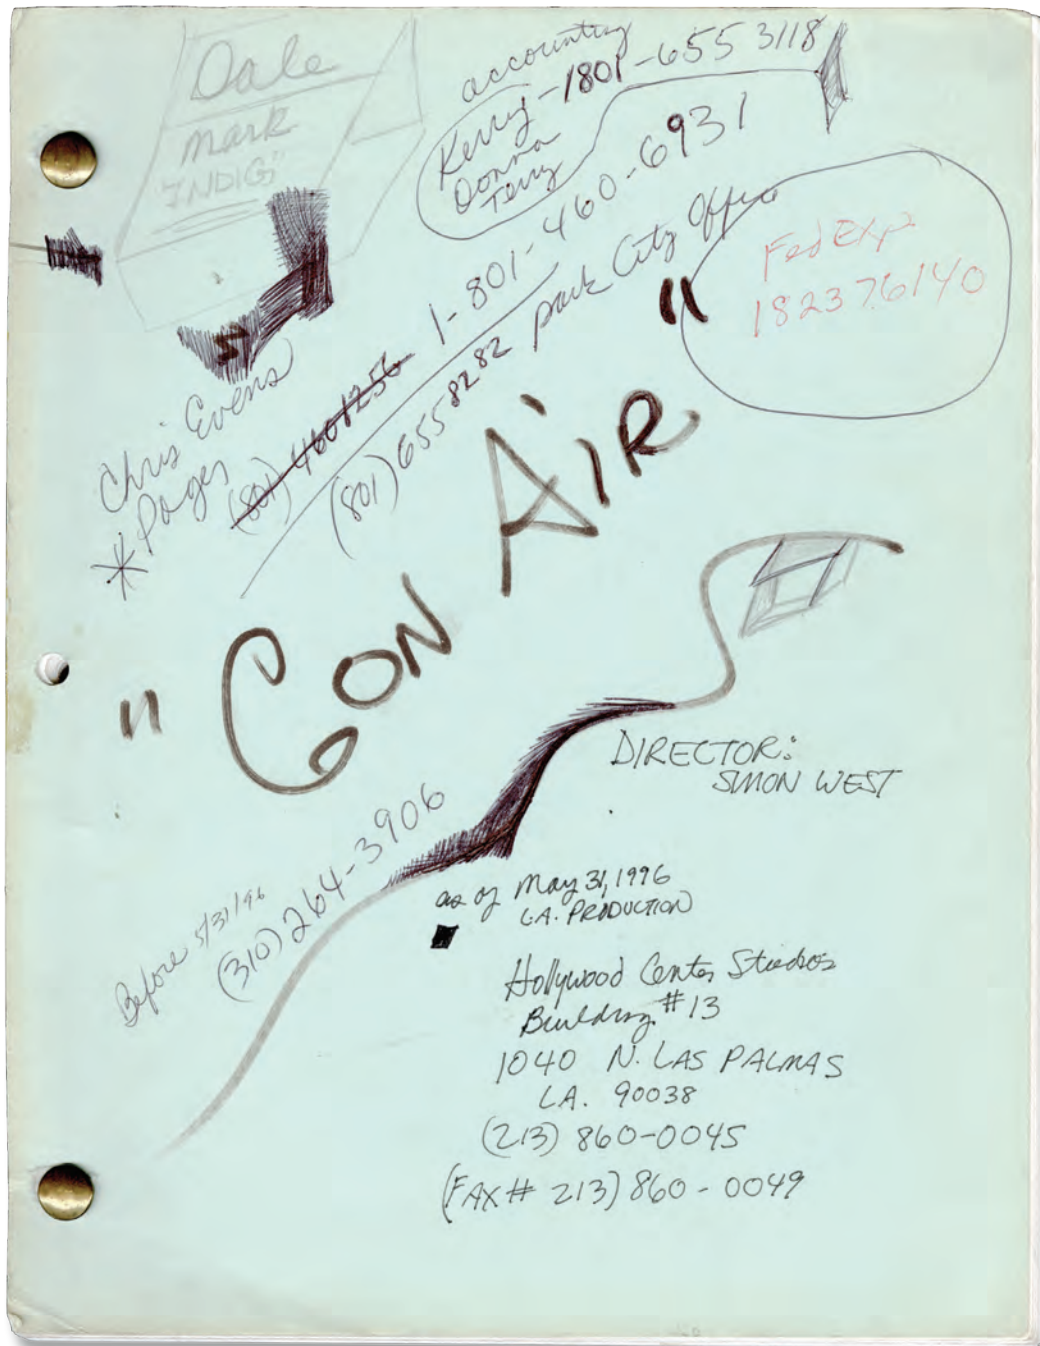 Dale
mark
INDIG"
accounting
Kerry-1801-655 3118
Donna
Terry
1-801-460-6931
(801) 655 8282 park City Office
Fed Exp
182376140
Chris Evens
*Pages
(801) 460 1256
" CON AiR "
DIRECTOR:
SIMON WEST
Before 5/31/96
(310) 264-3906
as of May 31, 1996
L.A. PRODUCTION
Hollywood Center Studios
Building #13
1040 N. LAS PALMAS
LA. 90038
(213) 860-0045
(FAX# 213) 860-0049